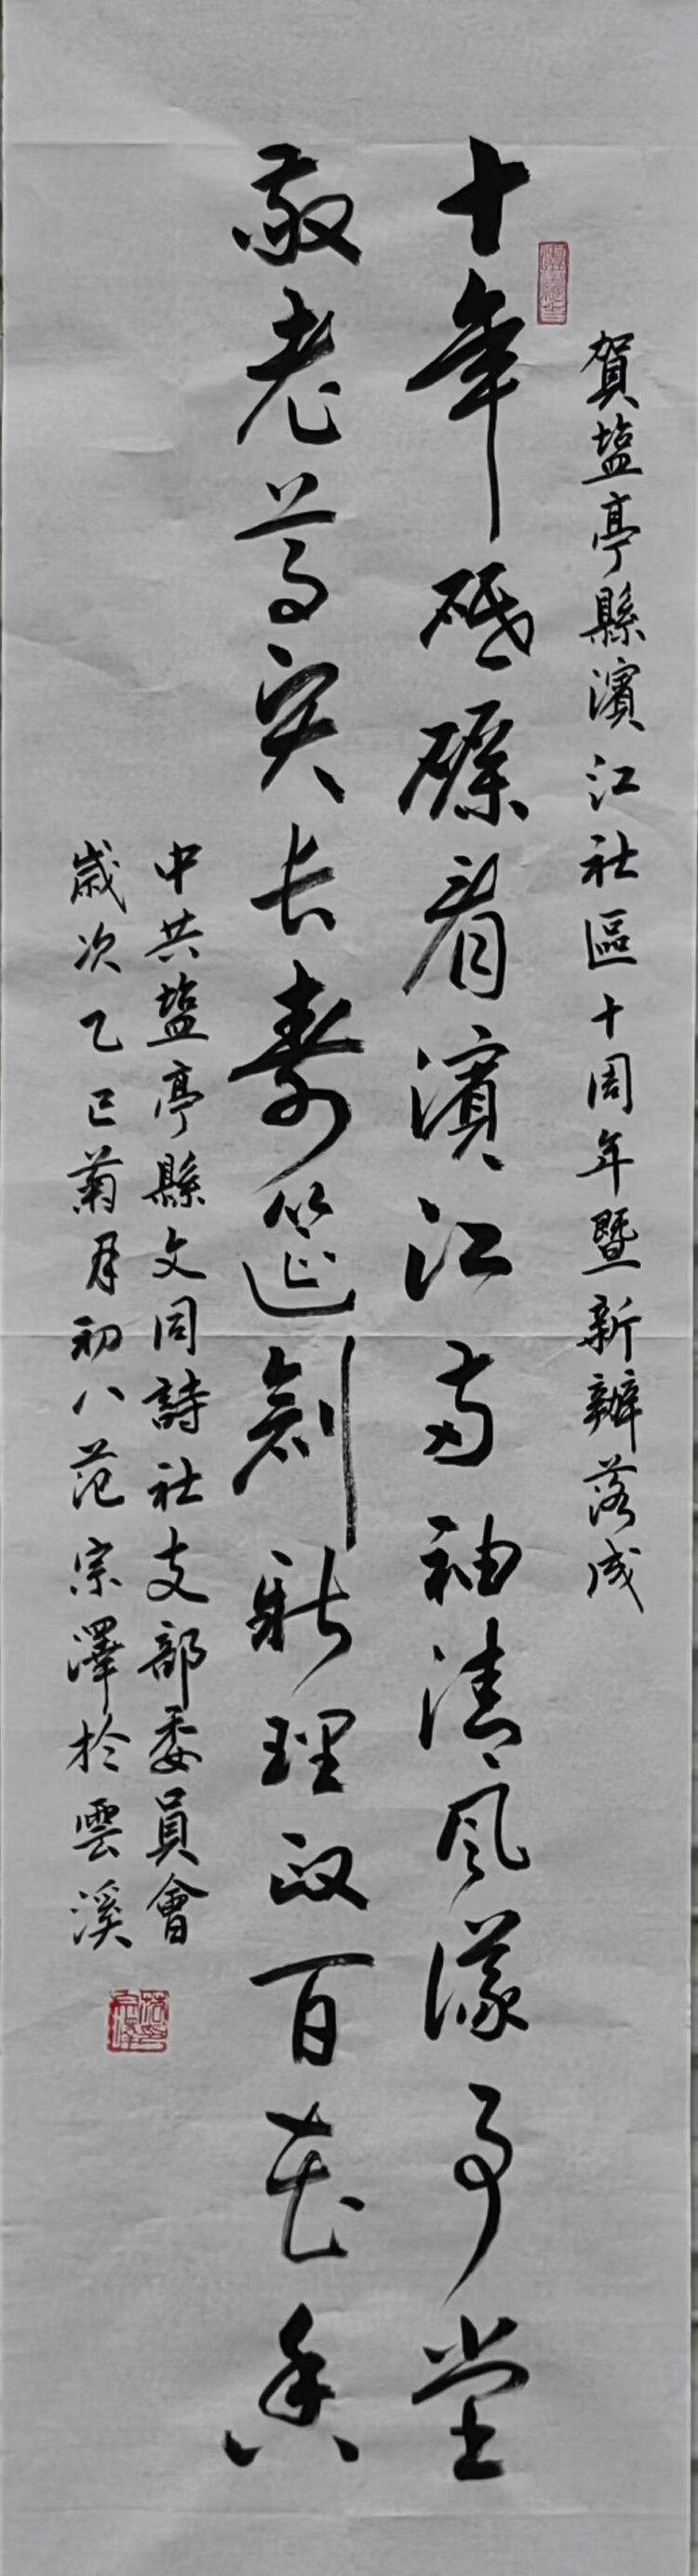 賀塩亭縣濱江社區十周年暨新辦落成
十年砥礫看濱江兩袖清风議事堂
敬老尊长壽筵創新理政百花香
中共塩亭縣文同詩社支部委員會
歲次乙巳菊月初八范宗澤於雲溪